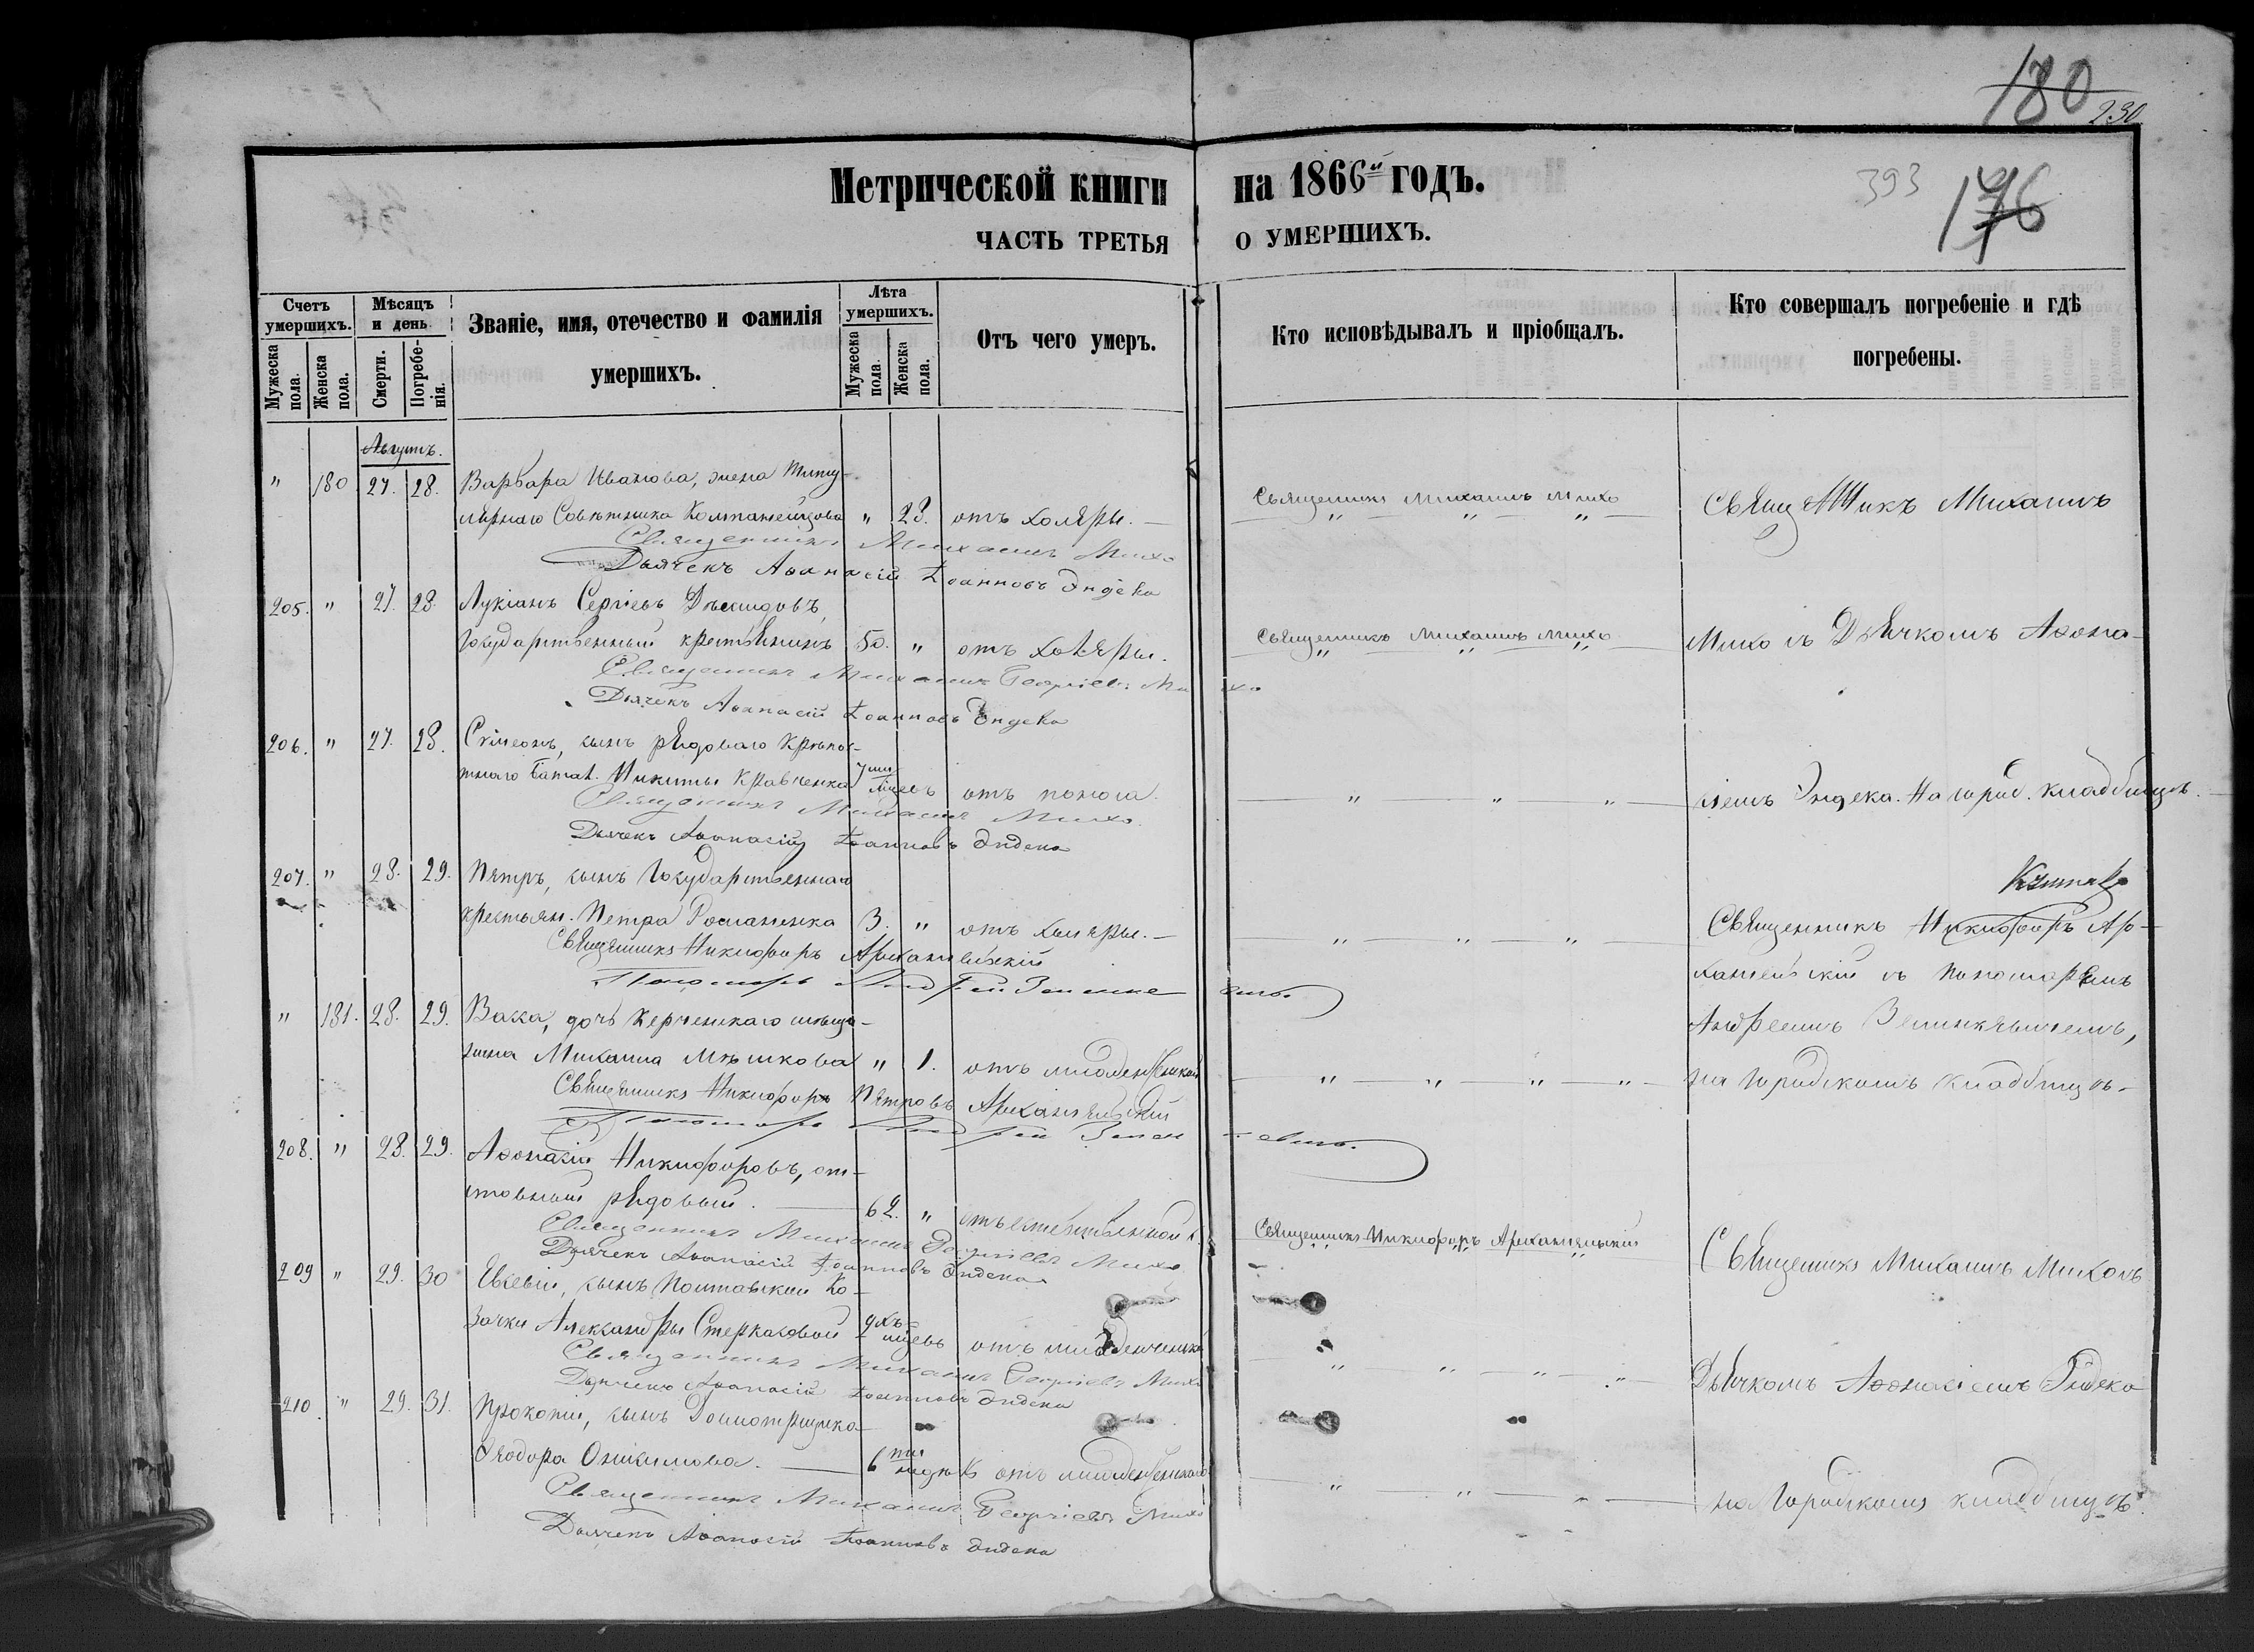 180
230
393
176
Метрической книги на 1866й годъ.
ЧАСТЬ ТРЕТЬЯ О УМЕРШИХЪ.
Счетъ умершихъ.
Мужеска пола.
Женска пола.
Мѣсяцъ и день
Смерти.
Погребенія.
Званіе, имя, отечество и фамилія умершихъ.
Лѣта умершихъ.
Мужеска пола.
Женска пола.
Отъ чего умеръ.
Кто исповѣдывалъ и пріобщалъ.
Кто совершалъ погребеніе и гдѣ погребены.
Августъ.
" 180 27. 28. Варвара Иванова, жена Титу-
лярнаго Совѣтника " 23. отъ холеры.
Священникъ Михаилъ Михо
Священникъ Михаилъ Михо
Дьячекъ Аѳанасій Іоанновъ Эндека
205. " 27. 28. Лукіанъ Сергіевъ Демидовъ,
государственный крестьянинъ 50. " отъ холеры.
Священникъ Михаилъ Михо
Священникъ Михаилъ Георгіевъ Михо
Дьячекъ Аѳанасій Іоанновъ Эндека
206. " 27. 28. Симеонъ, сынъ рядоваго Крѣпос-
тнаго Батал. Никиты Кравченка 7ми мѣцевъ отъ поноса.
" " "
Священникъ Михаилъ Михо
Дьячекъ Аѳанасій Іоанновъ Эндека
Священникъ Михаилъ
Михо съ Дьячкомъ Аѳана-
сіемъ Эндека. На город. кладбищѣ.
207. " 28. 29. Петръ, сынъ Государственнаго
крестьян. Петра Романенка 3. " отъ холеры.
" " "
Священникъ Никифоръ Архангельскій
Пономарь Андрей
" 181. 28. 29. Васса, дочь Керченскаго мѣща-
нина Михаила Мѣшкова " 1. отъ младенческой
" " " "
Священникъ Никифоръ Петровъ Архангельскій
Пономарь Андрей
Священникъ Никифоръ Ар-
хангельскій съ пономаремъ
Андреемъ
на Городскомъ кладбищѣ.
208. " 28. 29. Аѳанасій Никифоровъ, от-
ставный рядовый. 62. " отъ естественной
Священникъ Никифоръ Архангельскій
Священникъ Михаилъ Георгіевъ Михо
Дьячекъ Аѳанасій Іоанновъ Эндека
209 " 29. 30 Евсевій, сынъ Полтавской Ко-
зачки Александры Стеркасовой 2хъ мѣцевъ отъ младенческой
" " " "
Священникъ Михаилъ Георгіевъ Михо
Дьячекъ Аѳанасій Іоанновъ Эндека
210. " 29. 31. Прокопій, сынъ Досмотрщика
Ѳеодора Онисимова. 6ти недѣль отъ младенческой
" " "
Священникъ Михаилъ Георгіевъ Михо
Дьячекъ Аѳанасій Іоанновъ Эндека
Священникъ Михаилъ Михо съ
Дьячкомъ Аѳонасіемъ Эндека
на Городскомъ кладбищѣ.